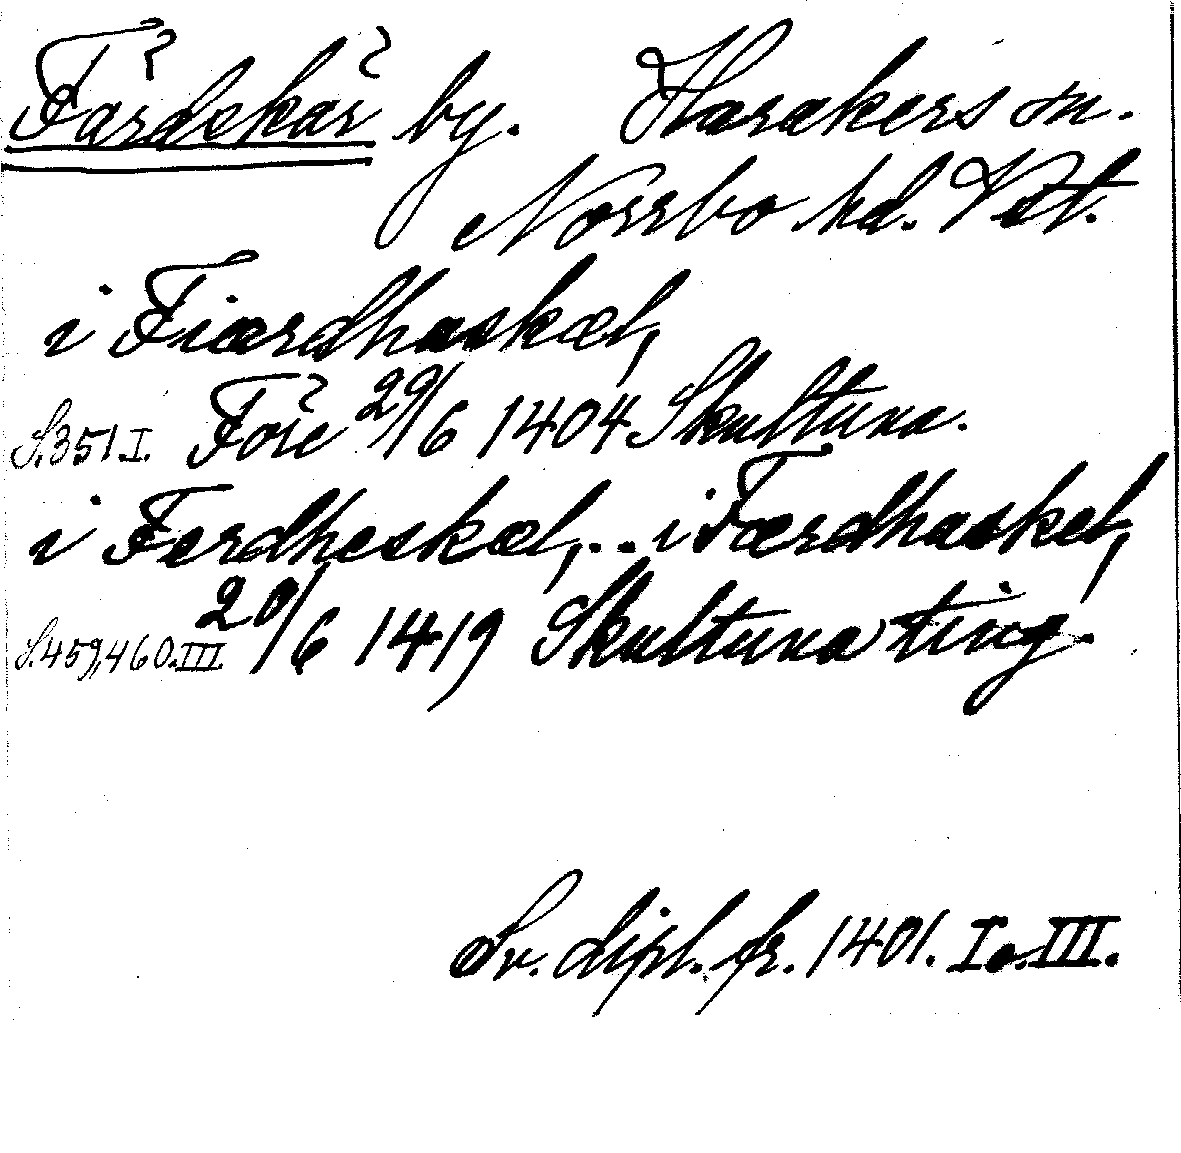 Färdskär by. Harakers sn.
Norrbo hd. Vstl.
i Fiærdhaskæl,
S.351.I. Före 29/6 1404 Skultuna.
i Ferdheskæl,... i Færdhaskel,
S.459,460.III. 20/6 1419 Skultuna ting.
Sv. dipl. fr. 1401. I o. III.